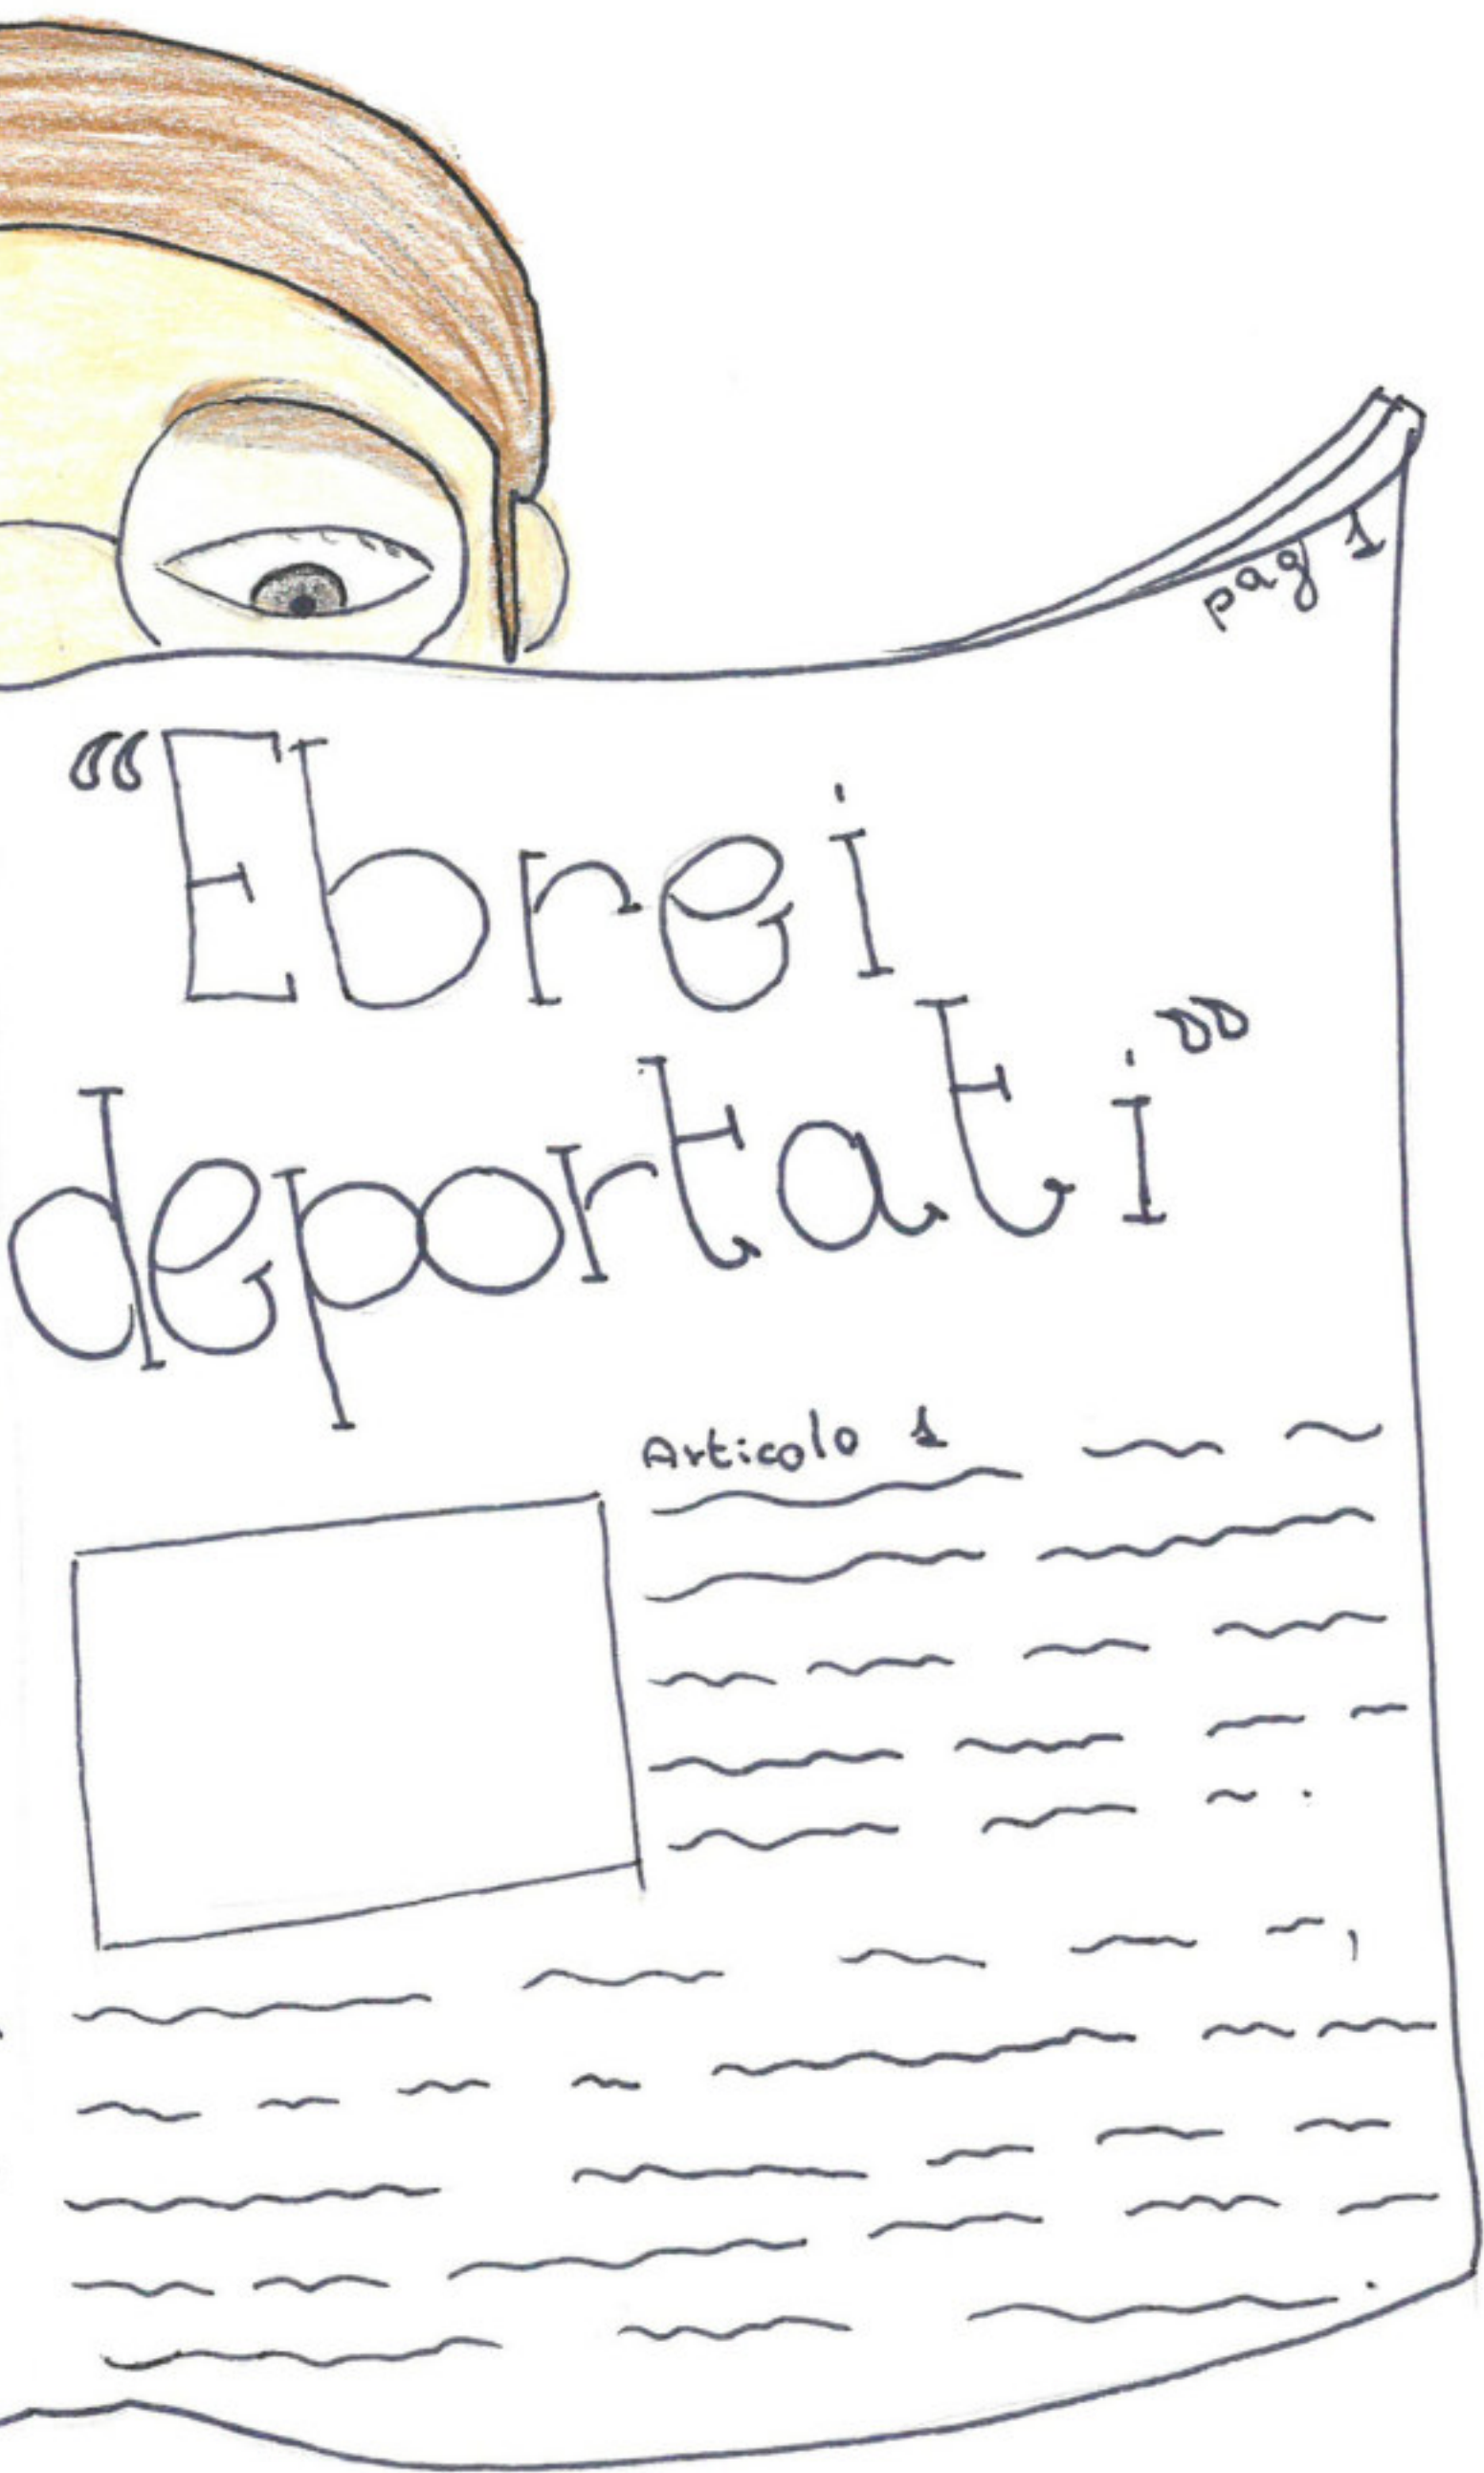 pag 1
“Ebrei
deportati”
Articolo 1